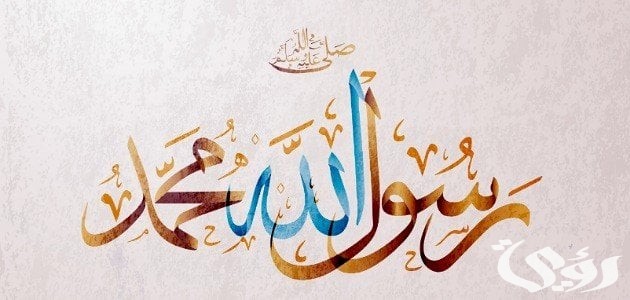 صلى الله عليه وسلم
رسول الله محمد
رؤية